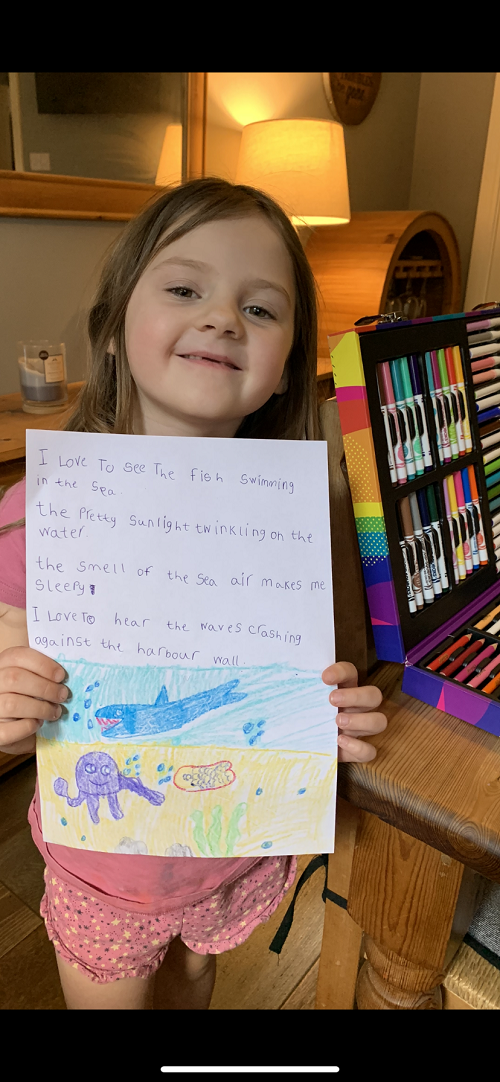 I LOVE TO see The fish swimming
in the sea.
the Pretty sunlight twinkling on the
water.
the smell of the sea air makes me
sleepy
I LOVE TO hear the waves crashing
against the harbour wall.